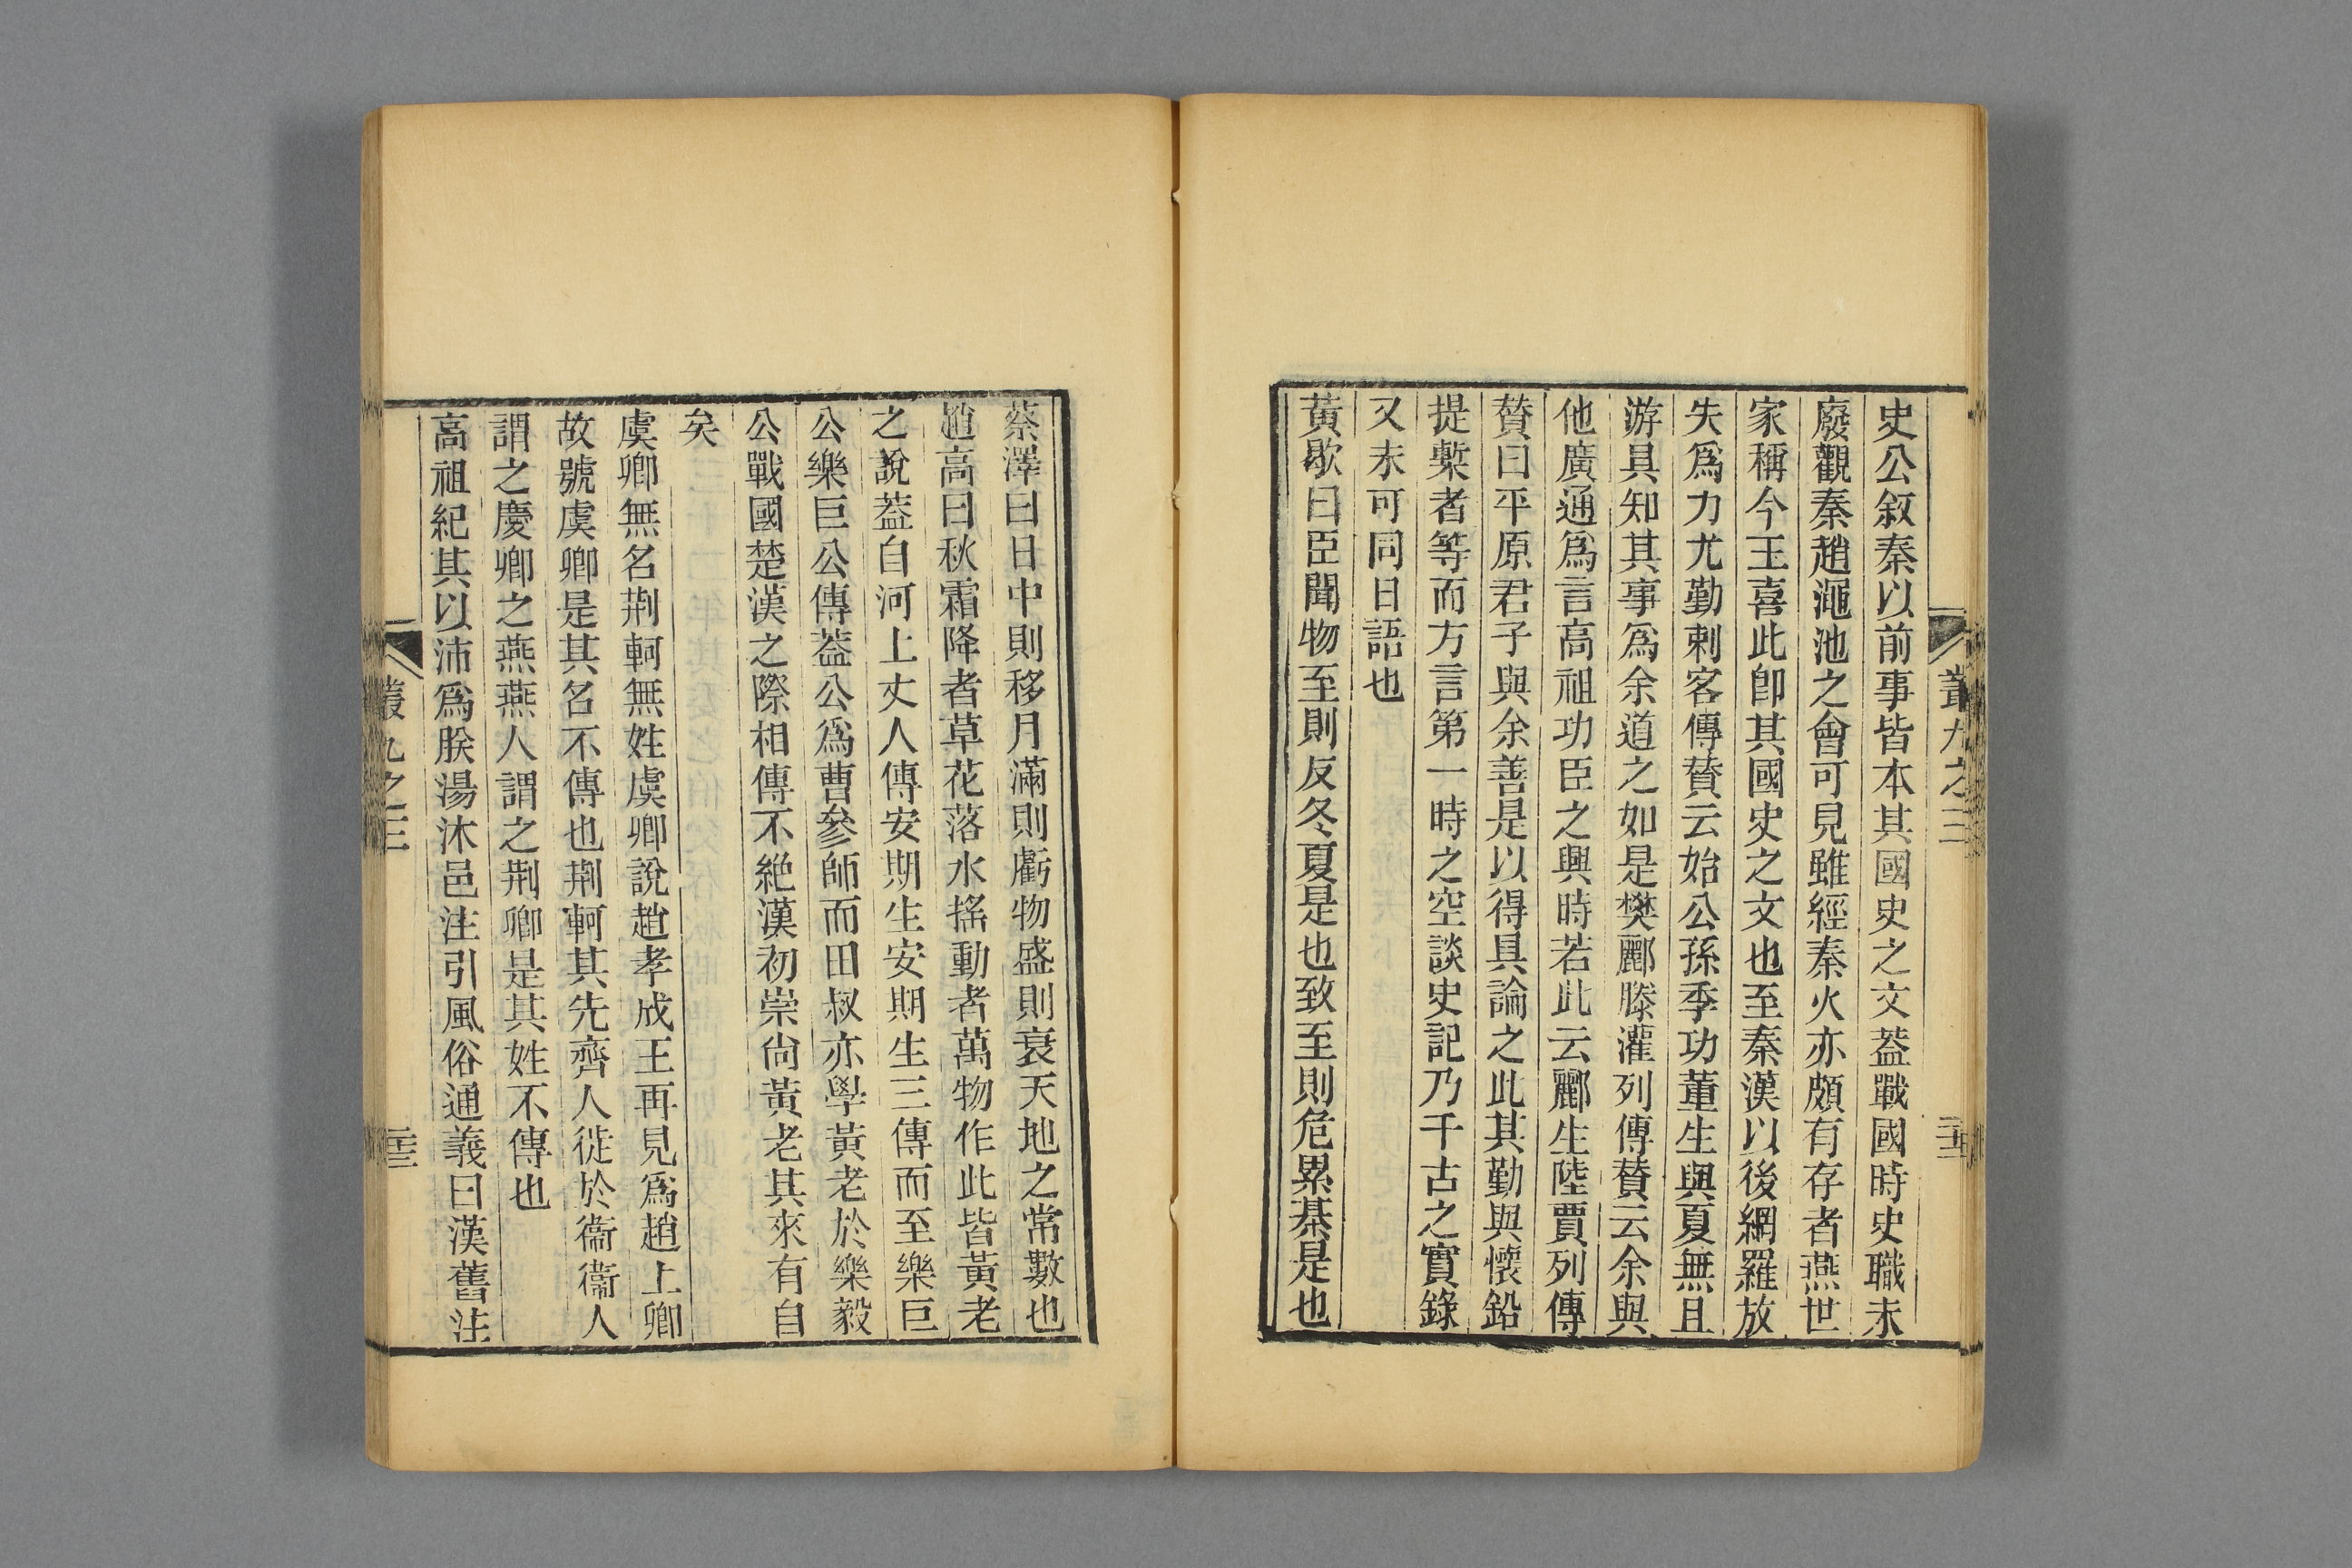 史公敘秦以前事皆本其國史之文葢戰國時史職未
廢觀秦趙澠池之會可見雖經秦火亦頗有存者燕世
家稱今王喜此卽其國史之文也至秦漢以後網羅放
失爲力尤勤刺客傳贊云始公孫季功董生與夏無且
游具知其事爲余道之如是樊酈滕灌列傳贊云余與
他廣通爲言高祖功臣之興時若此云酈生陸賈列傳
贊曰平原君子與余善是以得具論之此其勤與懷鉛
提槧者等而方言第一時之空談史記乃千古之實錄
又未可同日語也
黃歇曰臣聞物至則反冬夏是也致至則危累棊是也
蔡澤曰日中則移月滿則虧物盛則衰天地之常數也
趙高曰秋霜降者草花落水搖動者萬物作此皆黃老
之說葢自河上丈人傳安期生安期生三傳而至樂巨
公樂巨公傳葢公爲曹參師而田叔亦學黃老於樂毅
公戰國楚漢之際相傳不絶漢初崇尙黃老其來有自
矣
虞卿無名荆軻無姓虞卿說趙孝成王再見爲趙上卿
故號虞卿是其名不傳也荆軻其先齊人徙於衞衞人
謂之慶卿之燕燕人謂之荆卿是其姓不傳也
高祖紀其以沛爲朕湯沐邑注引風俗通義曰漢舊注
叢九之三